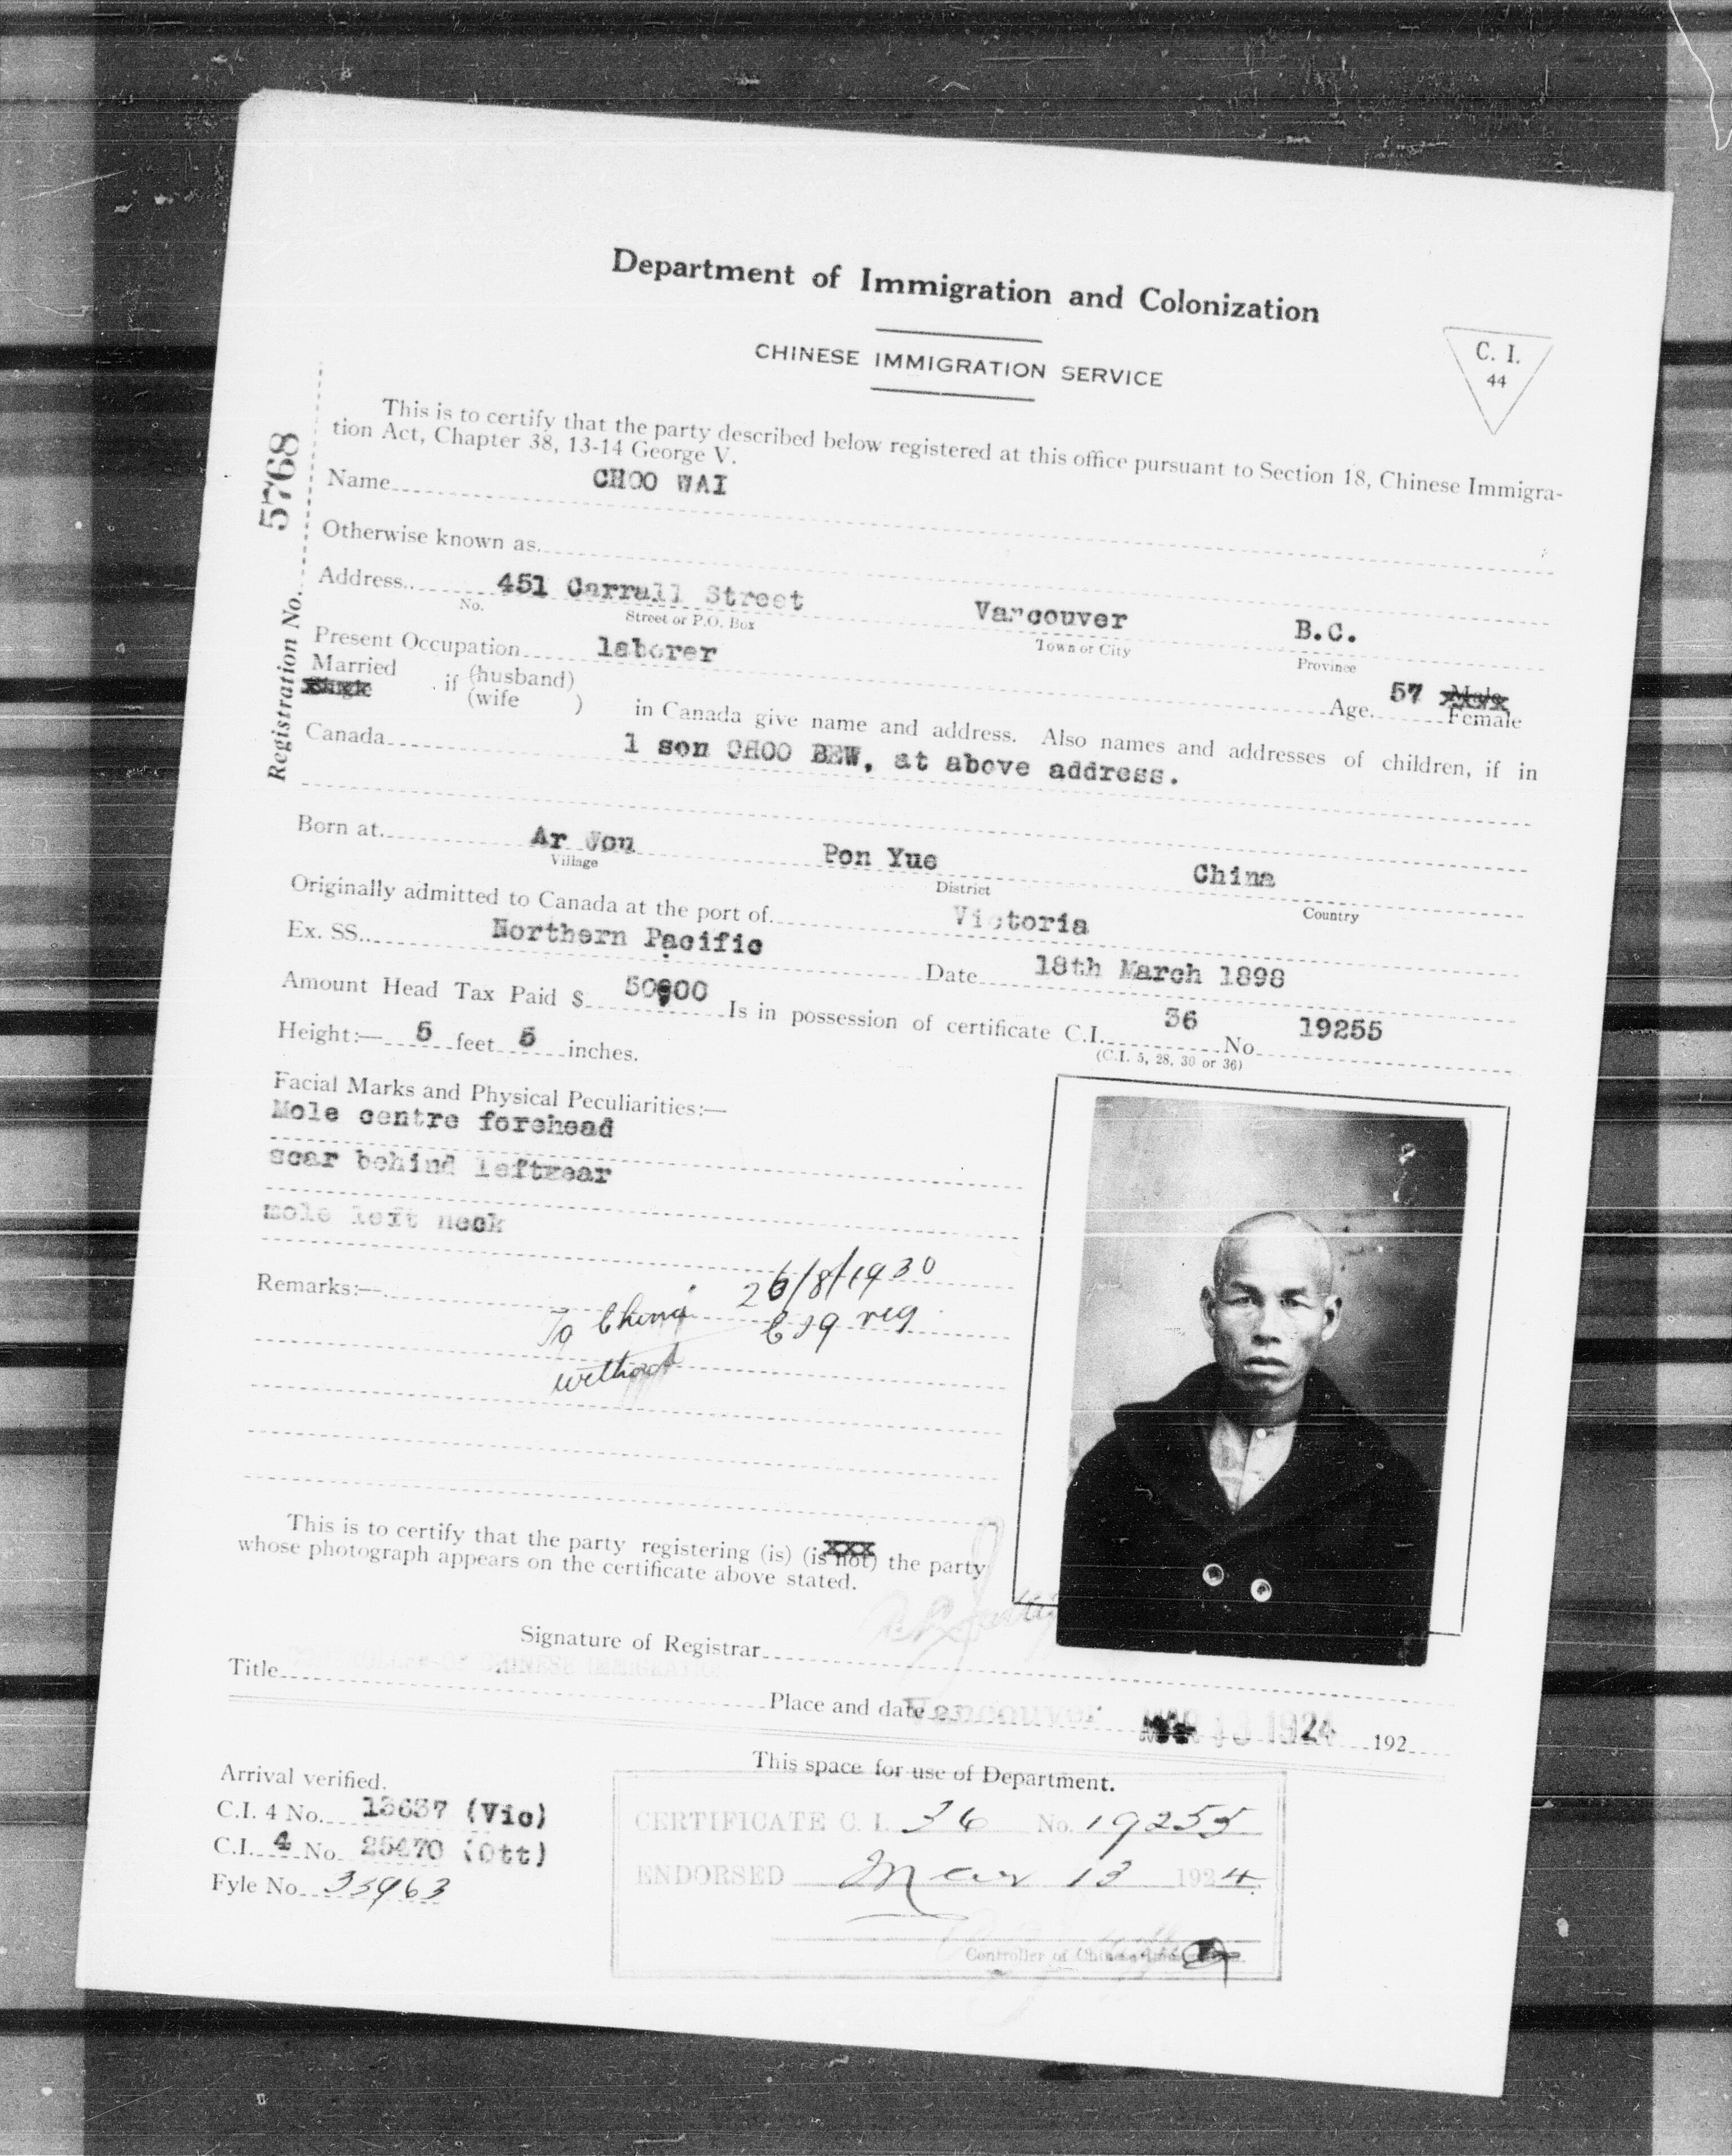 Department of Immigration and Colonization
CHINESE IMMIGRATION SERVICE
C. I.
44
This is to certify that the party described below registered at this office pursuant to Section 18, Chinese Immigra-
tion Act, Chapter 38, 13-14 George V.
Registration No. 5768
Name CHOO WAI
Otherwise known as
Address 451 Carrall Street Vancouver B.C.
No. Street or P.O. Box Town or City Province
Present Occupation laborer Age 57 Male
Female
Married
Single if (husband)
(wife ) in Canada give name and address. Also names and addresses of children, if in
Canada 1 son CHOO BEW, at above address.
Born at Ar Wou Pon Yue China
Village District Country
Originally admitted to Canada at the port of Victoria
Ex. SS. Northern Pacific Date 18th March 1898
Amount Head Tax Paid $ 50.00 Is in possession of certificate C.I. 36 No 19255
(C.I. 5, 28, 30 or 36)
Height:— 5 feet 5 inches.
Facial Marks and Physical Peculiarities:—
Mole centre forehead
scar behind leftxear
mole left neck
Remarks:—
To China 26/8/1930
without C I 9 reg
This is to certify that the party registering (is) (is not) the party
whose photograph appears on the certificate above stated.
Signature of Registrar
Title CONTROLLER OF CHINESE IMMIGRATION
Place and date Vancouver MAR 13 1924 192
This space for use of Department.
Arrival verified.
C.I. 4 No. 13637 (Vic)
C.I. 4 No. 25470 (Ott)
Fyle No. 33963
CERTIFICATE C. I. 36 No. 19255
ENDORSED Mar 13 1924
Controller of Chinese Immigration.